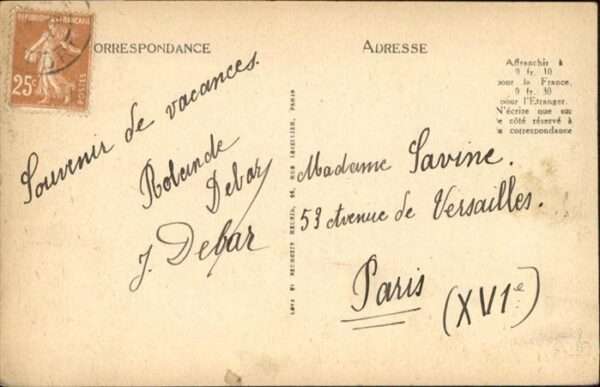 RÉPUBLIQUE FRANÇAISE
25c
POSTES
ORRESPONDANCE
ADRESSE
Affranchir à
0 fr. 10
pour la France,
0 fr. 30
pour l'Etranger.
N'écrire que sur
le côté réservé à
la correspondance
Souvenir de vacances.
Rolande
Debar
J. Debar
Madame Savine.
53 Avenue de Versailles.
Paris
(XVIe)